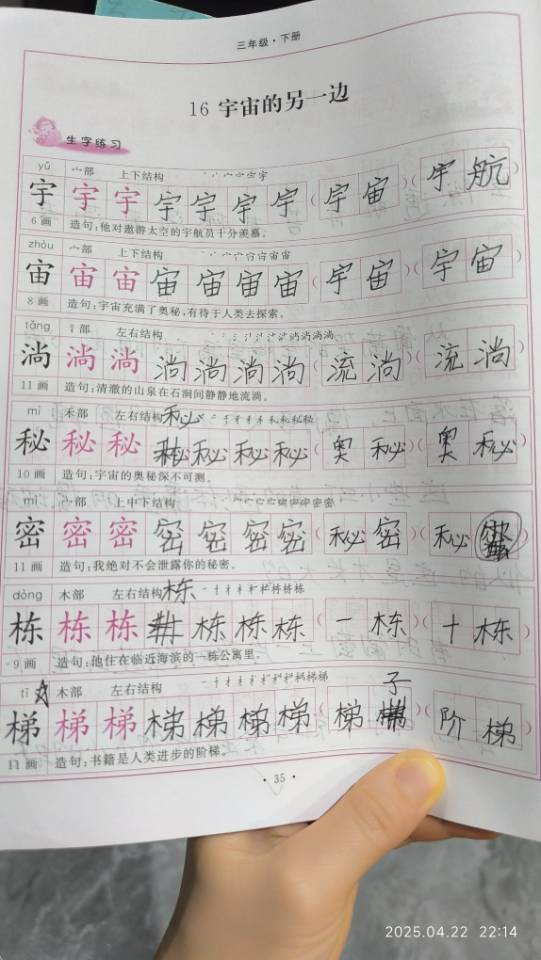 三年级·下册
16 宇宙的另一边
生字练习
yǔ 宀部 上下结构
宇 宇 宇 宇 宇 宇 宇 (宇 宙) (宇 航)
6画 造句:他对遨游太空的宇航员十分羡慕。
zhòu 宀部 上下结构
宙 宙 宙 宙 宙 宙 宙 (宇 宙) (宇 宙)
8画 造句:宇宙充满了奥秘,有待于人类去探索。
tǎng 氵部 左右结构
淌 淌 淌 淌 淌 淌 淌 (流 淌) (流 淌)
11画 造句:清澈的山泉在石涧间静静地流淌。
mì 禾部 左右结构 秘
秘 秘 秘 秘 秘 秘 (奥 秘) (奥 秘)
10画 造句:宇宙的奥秘深不可测。
mì 宀部 上中下结构
密 密 密 密 密 密 密 (秘 密) (秘
11画 造句:我绝对不会泄露你的秘密。
dòng 木部 左右结构 栋
栋 栋 栋 栋 栋 栋 (一 栋) (十 栋)
9画 造句:他住在临近海滨的一栋公寓里.
tī 木部 左右结构 子
梯 梯 梯 梯 梯 梯 梯 (梯 (阶 梯)
11画 造句:书籍是人类进步的阶梯。
·35·
2025.04.22 22:14